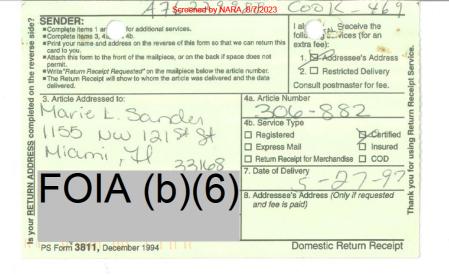 Screened by NARA, 8/7/2023
COOK-469
SENDER:
Complete items 1 an for additional services.
Complete items 3, 4a, 4b.
Print your name and address on the reverse of this form so that we can return this card to you.
Attach this form to the front of the mailpiece, or on the back if space does not permit.
Write "Return Receipt Requested" on the mailpiece below the article number.
The Return Receipt will show to whom the article was delivered and the date delivered.
I al receive the
services (for an
extra fee):
1. Addressee's Address
2. Restricted Delivery
Consult postmaster for fee.
3. Article Addressed to:
Marie L. Sander
1155 NW 121 St St
Miami, Fl
33168
4a. Article Number
306-882
4b. Service Type
Registered Certified
Express Mail Insured
Return Receipt for Merchandise COD
7. Date of Delivery
5-27-97
8. Addressee's Address (Only if requested and fee is paid)
FOIA (b)(6)
PS Form 3811, December 1994
Domestic Return Receipt
Is your RETURN ADDRESS completed on the reverse side?
Thank you for using Return Receipt Service.